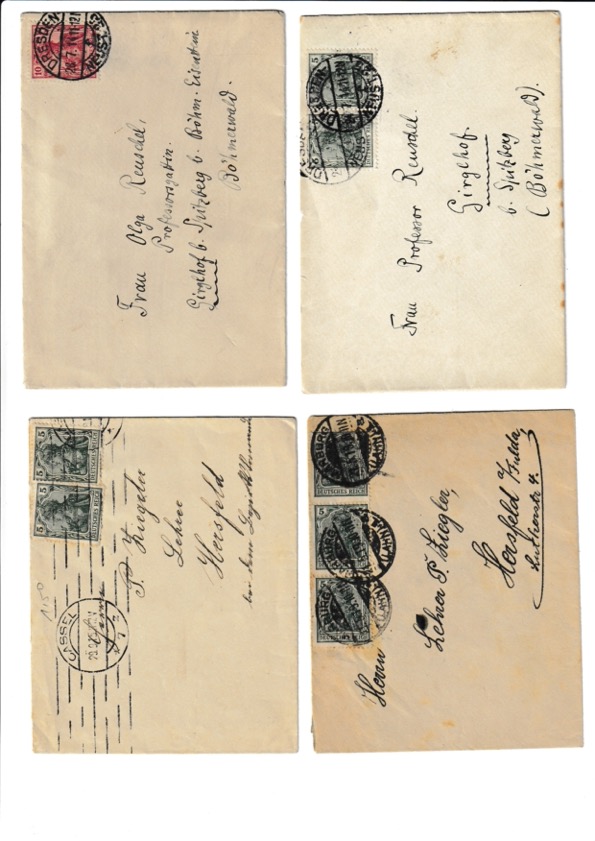 10
DRESDEN
NEUST.
Frau Olga Reuschel,
Professorsgattin.
Girglhof b. Spitzberg b. Böhm. Eisenstein
Böhmerwald.
5
DRESDEN
NEUST.
Frau Professor Reuschel.
Girglhof.
b. Spitzberg
(Böhmerwald).
5 5
DEUTSCHES REICH
5 5
DEUTSCHES REICH
1150
CASSEL
P. Ziegler
Lehrer
Hersfeld
DEUTSCHES REICH
5
DEUTSCHES REICH
DEUTSCHES REICH
(LAHN)
Herrn Lehrer P. Ziegler,
Hersfeld Fulda,